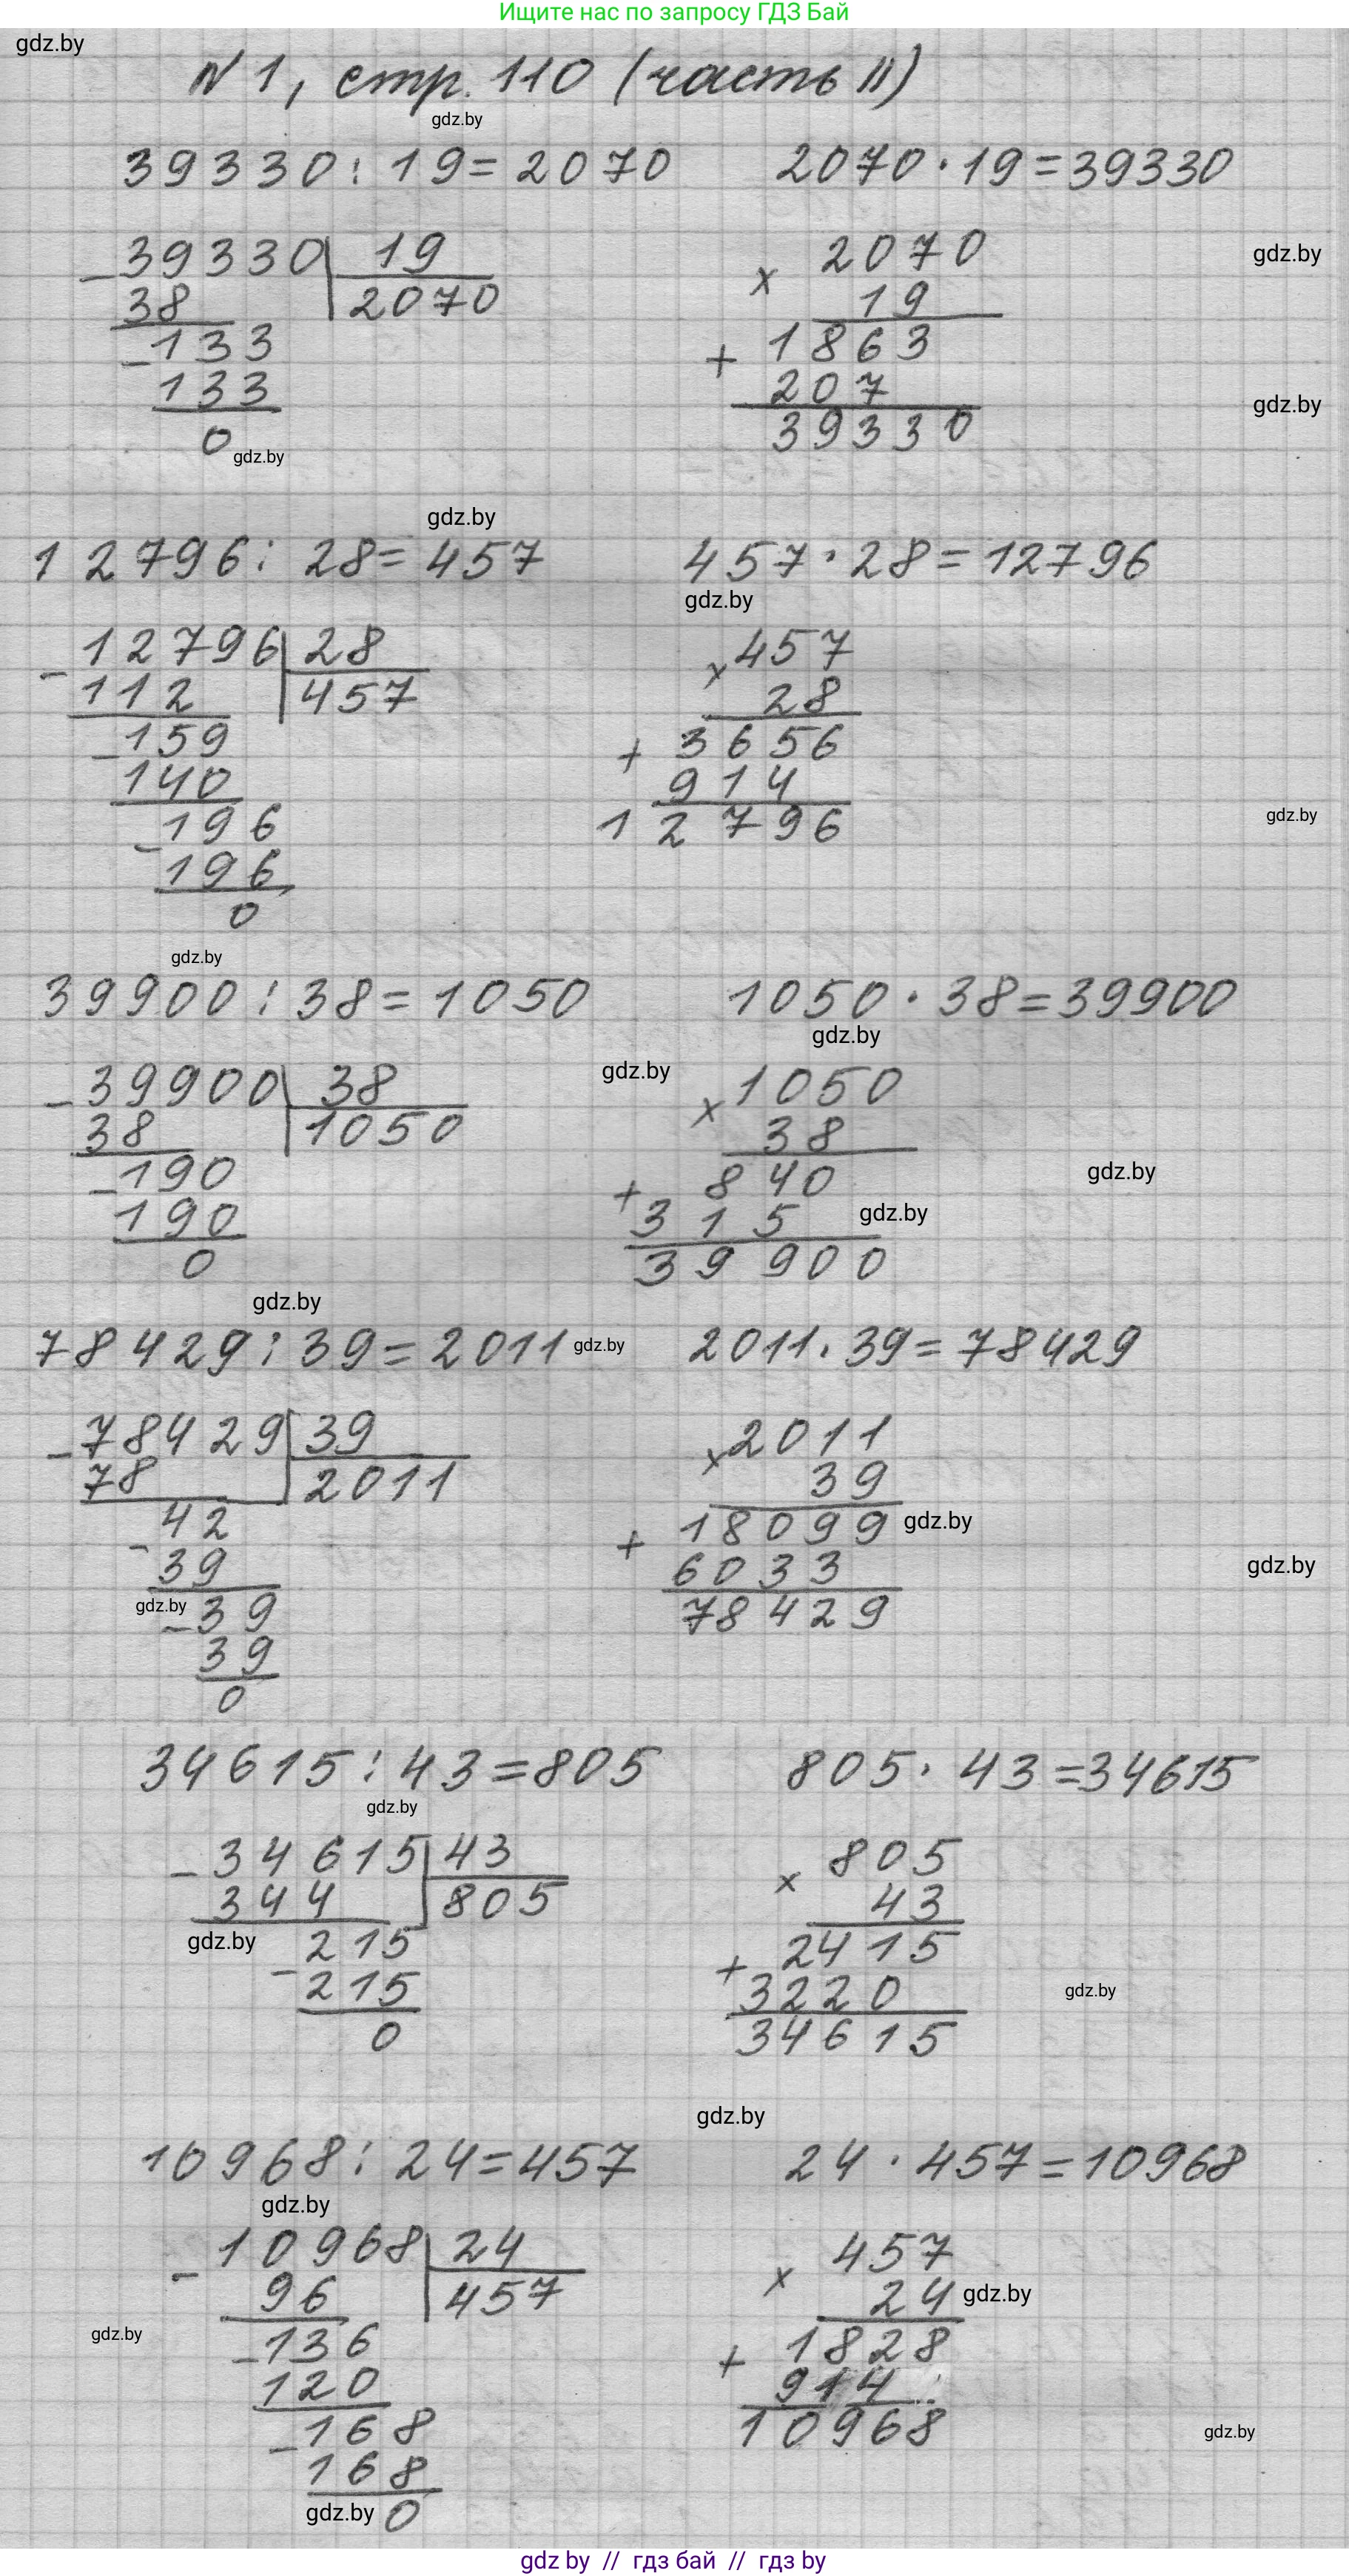 Ищите нас по запросу ГДЗ Бай
gdz.by
№1, стр. 110 (часть II)
gdz.by
39330 : 19 = 2070 2070 · 19 = 39330
- 39330 | 19 x 2070 gdz.by
38 2070 19
- 133 + 1863
133 207 gdz.by
0 39330
gdz.by
gdz.by
12796 : 28 = 457 457 · 28 = 12796
gdz.by
- 12796 | 28 x 457
112 457 28
- 159 + 3656
140 914
- 196 12796 gdz.by
196
0
gdz.by
39900 : 38 = 1050 1050 · 38 = 39900
gdz.by
- 39900 | 38 gdz.by x 1050
38 1050 38
- 190 + 840 gdz.by
190 315 gdz.by
0 39900
gdz.by
78429 : 39 = 2011 gdz.by 2011 · 39 = 78429
- 78429 | 39 x 2011
78 2011 39
- 42 + 18099 gdz.by
39 6033 gdz.by
gdz.by - 39 78429
39
0
34615 : 43 = 805 805 · 43 = 34615
gdz.by
- 34615 | 43 x 805
344 805 43
gdz.by - 215 + 2415
215 3220 gdz.by
0 34615
gdz.by
10968 : 24 = 457 24 · 457 = 10968
gdz.by
- 10968 | 24 x 457
96 457 24 gdz.by
gdz.by - 136 + 1828
120 914
- 168 10968 gdz.by
168
gdz.by 0
gdz by // гдз бай // гдз by